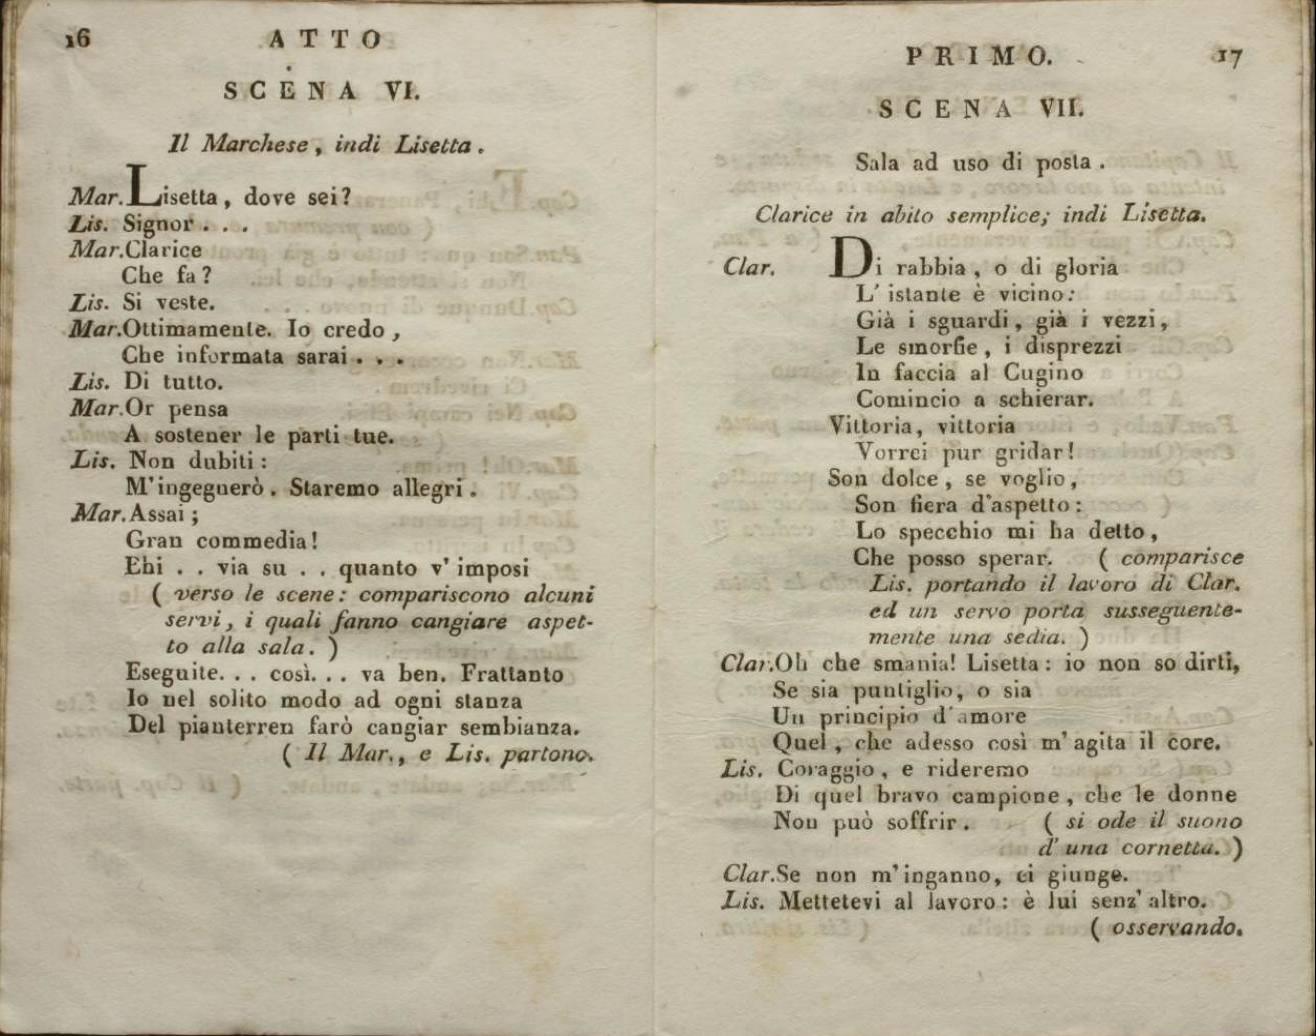 16
ATTO
SCENA VI.
Il Marchese, indi Lisetta.
Mar. Lisetta, dove sei?
Lis. Signor . . .
Mar. Clarice
Che fa?
Lis. Si veste.
Mar. Ottimamente. Io credo,
Che informata sarai . . .
Lis. Di tutto.
Mar. Or pensa
A sostener le parti tue.
Lis. Non dubiti:
M'ingegnerò. Staremo allegri.
Mar. Assai;
Gran commedia!
Ehi . . via su . . quanto v' imposi
( verso le scene: compariscono alcuni
servi, i quali fanno cangiare aspet-
to alla sala. )
Eseguite. . . così. . . va ben. Frattanto
Io nel solito modo ad ogni stanza
Del pianterren farò cangiar sembianza.
( Il Mar., e Lis. partono.
PRIMO.
17
SCENA VII.
Sala ad uso di posta.
Clarice in abito semplice; indi Lisetta.
Clar. Di rabbia, o di gloria
L' istante è vicino:
Già i sguardi, già i vezzi,
Le smorfie, i disprezzi
In faccia al Cugino
Comincio a schierar.
Vittoria, vittoria
Vorrei pur gridar!
Son dolce, se voglio,
Son fiera d'aspetto:
Lo specchio mi ha detto,
Che posso sperar. ( comparisce
Lis. portando il lavoro di Clar.
ed un servo porta susseguente-
mente una sedia. )
Clar. Oh che smania! Lisetta: io non so dirti,
Se sia puntiglio, o sia
Un principio d'amore
Quel, che adesso così m' agita il core.
Lis. Coraggio, e rideremo
Di quel bravo campione, che le donne
Non può soffrir. ( si ode il suono
d' una cornetta. )
Clar. Se non m'inganno, ei giunge.
Lis. Mettetevi al lavoro: è lui senz' altro.
( osservando.